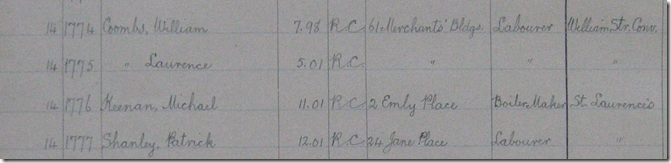 14 1774 Coombs, William 7.98 R.C. 61 Merchants' Bldgs. Labourer William Str. Conv.
14 1775 " Laurence 5.01 R.C. " " "
14 1776 Keenan, Michael 11.01 R.C. 2 Emly Place Boiler Maker St. Laurence's
14 1777 Shanley, Patrick 12.01 R.C. 24 Jane Place Labourer "